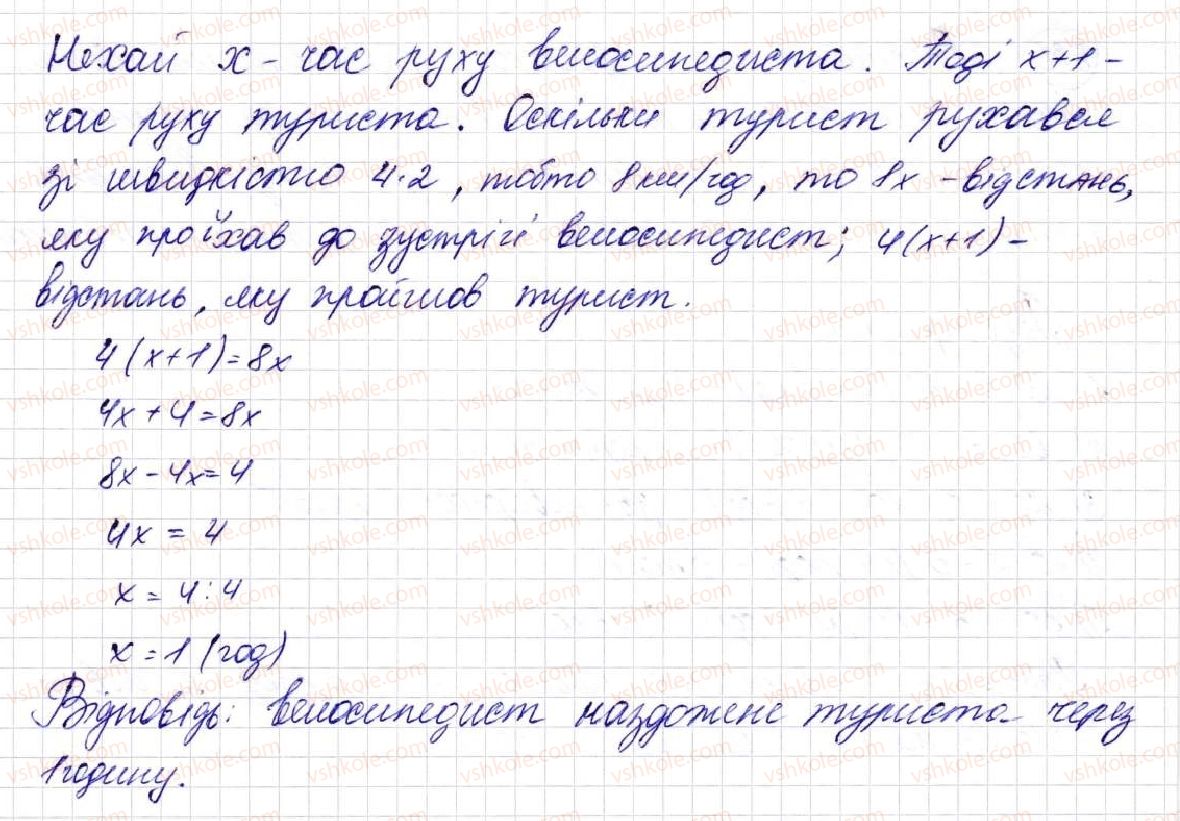 Нехай x - час руху велосипедиста. Тоді x+1 -
час руху туриста. Оскільки турист рухався
зі швидкістю 4·2, тобто 8 км/год, то 8x - відстань,
яку проїхав до зустрічі велосипедист; 4(x+1) -
відстань, яку пройшов турист.
4(x+1)=8x
4x+4=8x
8x-4x=4
4x = 4
x = 4:4
x = 1 (год)
Відповідь: велосипедист наздожене туриста через
1 годину.